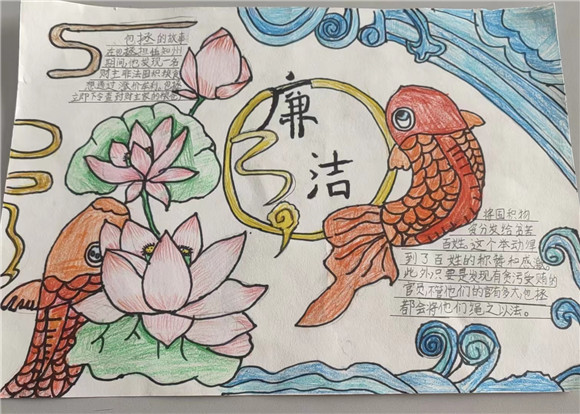 包拯的故事
在包拯担任知州
期间,他发现一名
财主非法囤积粮食
想通过涨价牟利,包拯
立即下令查封财主家的粮仓,
廉
洁
将囤积物
资分发给贫苦
百姓。这个举动得
到了百姓的称赞和感激
此外,只要是发现有贪污受贿的
官员,不管他们的官有多大,包拯
都会将他们绳之以法。